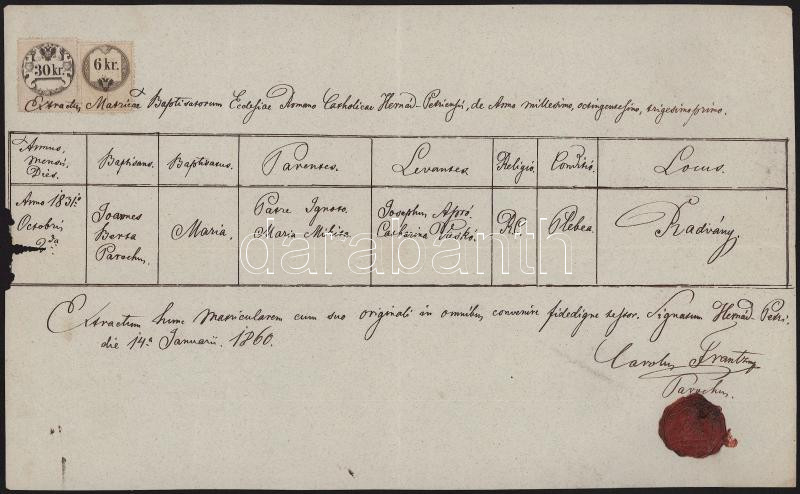 30 kr.
6 kr.
Extractus Matricae Baptisatorum Eclesiae Romano Catholicae Hernád-Petriensis, de Anno millesimo, octingentesimo, trigesimoprimo.
Annus, mensis, Dies.
Baptisans.
Baptisatus.
Parentes.
Levantes.
Religio.
Conditio.
Locus.
Anno 1831º Octobris 2da
Joannes Barta Parochus.
Maria.
Patre Ignoto.
Maria Mihitz
Josephus Apró
Catharina Vusko.
RC.
Plebea.
Radvány.
darabanth
Extractum hunc Matricularem cum suo originali in omnibus convenire fidedigne testor. Signatum Hernád-Petri,
die 14a Januarii. 1860.
Carolus Frantz
Parochus.